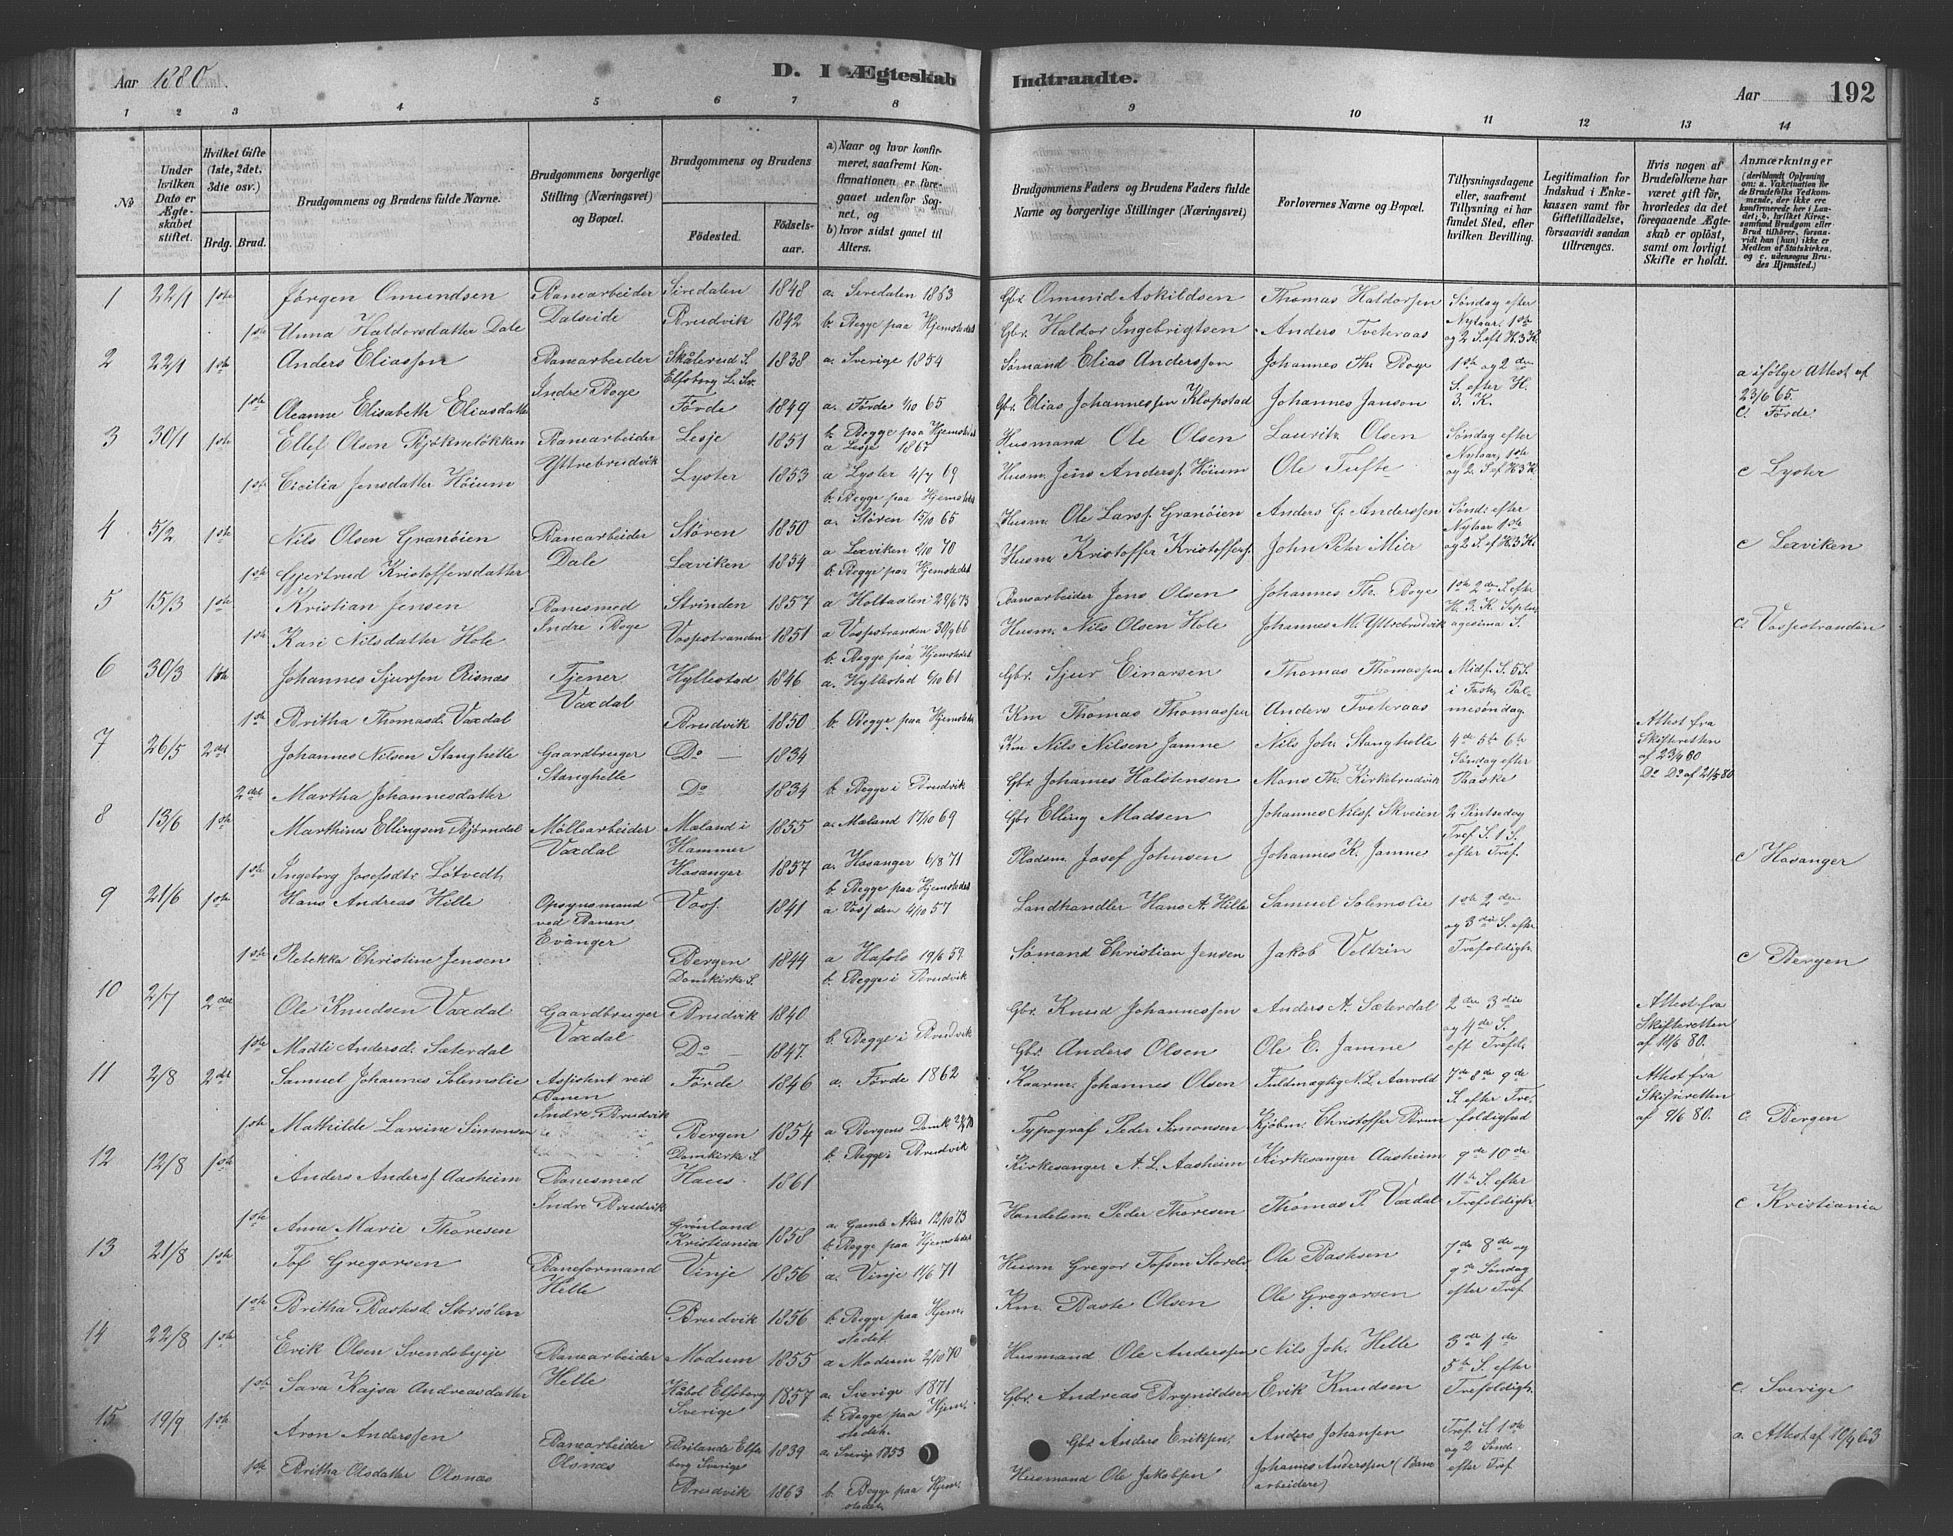 Aar 1880.
D. I Ægteskab Indtraadte.
Aar 192
1 2 3 4 5 6 7 8 9 10 11 12 13 14
No
Under hvilken Dato er Ægteskabet stiftet.
Hvilket Gifte (1ste, 2det, 3die osv.)
Brdg. Brud.
Brudgommens og Brudens fulde Navne.
Brudgommens borgerlige Stilling (Næringsvei) og Bopæl.
Brudgommens og Brudens
Fødested. Fødselsaar.
a) Naar og hvor konfirmeret, saafremt Konfirmationen er foregaaet udenfor Sognet, og
b) hvor sidst gaaet til Alters.
Brudgommens Faders og Brudens Faders fulde Navne og borgerlige Stillinger (Næringsvei)
Forlovernes Navne og Bopæl.
Tillysningsdagene eller, saafremt Tillysning ei har fundet Sted, efter hvilken Bevilling.
Legitimation for Indskud i Enkekassen samt for Giftetilladelse, forsaavidt saadan tiltrænges.
Hvis nogen af Brudefolkene har været gift før, hvorledes da det foregaaende Ægteskab er opløst, samt om lovligt Skifte er holdt.
Anmærkninger (deriblandt Oplysning om: a. Vakcination for de Brudefolks Vedkommende, der ikke ere konfirmerede her i Landet; b. hvilket Kirkesamfund Brudgom eller Brud tilhører, forsaavidt han (hun) ikke er Medlem af Statskirken, og c. udensogns Brudes Hjemsted.)
1 22/1 1ste Jørgen Omundsen Banearbeider Siredalen 1848 a. Siredalen 1863 Gbr Omund Askildsen Thomas Haldorsen Søndag efter
1ste Unna Haldorsdatter Dale Dalseide Brudvik 1842 b. Begge paa Hjemstedet Gbr. Haldor Ingebrigtsen Anders Tveteraas Nytaar, 1ste og 2 S. eft H. 3 K.
2 22/1 1ste Anders Eliassen Banearbeider Skålerud S. Elfsborg L. Sv. 1838 a. Sverige 1854 Sømand Elias Anderssøn Johannes Th. Boge 1ste og 2den a ifølge Attest af 23/6 65.
1ste Oleanne Elisabeth Eliasdatter Indre Boge Førde 1849 a. Førde 1/10 65 Gbr. Elias Johannessen Klopstad Johannes Janson S. efter H. 3. K. C. Førde
b. Begge paa Hjemstedet
3 30/1 1ste Ellef Olsen Bjøkneløkken Banearbeider Lesje 1851 a Lesje 1867 Husmand Ole Olsen Lauritz Olsen Søndag efter
1ste Cicilia Jensdatter Høium Yttrebrudvik Lyster 1853 a Lyster 4/7 69 Husm. Jens Anders. Høium Ole Tufte Nytaar, 1ste og 2. S. ef H. 3 K. c Lyster
b. Begge paa Hjemstedet
4 5/2 1ste Nils Olsen Granøien Banearbeider Støren 1850 a. Støren 15/10 65 Husm. Ole Lars. Granøien Anders G. Anderssen Sønd. efter
1ste Gjertrud Kristoffersdatter Dale Lexviken 1854 a Lexviken 2/10 70 Husm. Kristoffer Kristoffers. John Peter Mier Nytaar 1ste og 2 S. ef H. 3 K. c Lexviken
b. Begge paa Hjemstedet
5 15/3 1ste Kristian Jensen Banesmed Strinden 1857 a Holtaalen 29/6 73 Banearbeider Jens Olsen Johannes Th. Boge 1ste 2den S. efter
1ste Kari Nilsdatter Hole Indre Boge Vossestranden 1851 a Vossestranden 30/9 66 Husm. Nils Olsen Hole Johannes M. Yttrebrudvik H. 3. K. Septuagesima S. c. Vossestranden
b. Begge paa Hjemstedet
6 30/3 1ste Johannes Sjursen Risnæs Tjener Hyllestad 1846 a. Hyllestad 6/10 61 Gbr. Sjur Einarsen Thomas Thomassen Midf. S. 5 S.
1ste Britha Thomasd. Vaxdal Vaxdal Brudvik 1850 b. Begge paa Hjemstedet Km Thomas Thomassen Anders Tveteraas i Faste, Palmesøndag.
7 26/5 2det Johannes Nilsen Stanghelle Gaardbruger Do — 1834 Km Nils Nilsen Jamne Nils Joh. Stanghelle 4de 5te 6te Attest fra Skifteretten af 23/4 80
2det Martha Johannesdatter Stanghelle Do 1834 b. Begge i Brudvik Gbr. Johannes Halstensen Mons Th. Kirkebrudvik Søndag efter Paaske Do Do af 21/5 80
8 13/6 1ste Marthines Ellingsen Bjørndal Møllearbeider Mæland i Hammer 1855 a. Mæland 17/10 69 Gbr Elling Madsen Johannes Nilss. Skreien 2 Pintsedag
1ste Ingeborg Josefsdtr Løtvedt Vaxdal Hosanger 1857 a. Hosanger 6/8 71 Pladsm. Josef Johnsen Johannes K. Jamne Tref. S. 1 S. efter Tref. c Hosanger
b. Begge paa Hjemstedet
9 21/6 1ste Hans Andreas Hille Opsynsmand ved Banen Voss. 1841 a Voss den 4/10 57 Landhandler Hans A. Hille Samuel Solemslie 1ste 2den
1ste Rebekka Christine Jensen Evanger Bergen Domkirke S. 1844 a Hafslo 19/6 59. Sømand Christian Jensen Jakob Veltzin og 3die S. efter Trefoldigh. c Bergen
b. Begge i Brudvik
10 2/7 2det Ole Knudsen Vaxdal Gaardbruger Brudvik 1840 Gbr. Knud Johannessen Anders A. Sæterdal 2den 3die Attest fra Skifteretten af 11/6 80.
1ste Madli Andersd. Sæterdal Vaxdal Do — 1847. b. Begge i Brudvik Gbr. Anders Olsen Ole E. Jamne og 4de S. eft Trefol.
11 2/8 2det Samuel Johannes Solemslie Assistent ved Banen Førde 1846 a. Førde 1862 Kaarm. Johannes Olsen Fuldmægtig N. L. Aarvold 7de 8de 9de Attest fra Skifteretten af 9/6 80.
1ste Mathilde Larsine Simonsen Indre Brudvik Bergen Domkirke S 1854 a Bergens Domk Typograf Peder Simonsen Kjøbm. Christoffer Brun S. efter Trefoldighed c Bergen
b. Begge i Brudvik
12 12/8 1ste Anders Anders. Aasheim Banesmed Haus. 1861 Kirkesanger A. L. Aasheim Kirkesanger Aasheim 9de 10de
1ste Anne Marie Thoresen Indre Brudvik Grønland Kristiania 1858 a. Gamle Aker 12/10 73 Handelsm. Peder Thoresen Thomas P. Vaxdal 11te S. efter Trefoldigh. c Kristiania
b. Begge paa Hjemstedet
13 21/8 1ste Tof Gregorsen Baneformand Vinje 1856 a. Vinje 11/6 71 Husm Gregor Tofsen Ole Bastesen 7de 8de og
1ste Britha Bastesd. Storsølen Helle Brudvik 1856 b. Begge paa Hjemstedet. Km. Baste Olsen Ole Gregorsen 9de Søndag efter Tref.
14 22/8 1ste Erik Olsen Svendsbyeje Banearbeider Modum 1855 a Modum 2/10 70 Husmand Ole Anderssen Nils Joh. Helle 3de 4de
1ste Sara Kajsa Andreasdatter Helle Håbol Elfsborg Sverige 1857 a. Sverige 1871 Gbr. Andreas Brynildsen Erik Knudsen 5te S. efter Trefoldigh. c. Sverige
b. Begge paa Hjemstedet.
15 19/9 1ste Aron Anderssen Banearbeider Elfsborg Sverige 1839 a. Sverige 1853 Gbr Anders Eriksen. Anders Johansen Tref. S. 1ste a. Attest af 10/4 63
1ste Britha Olsdatter Olsnæs Olsnæs Brudvik 1863 b. Begge paa Hjemstedet. Husmand Ole Jakobsen Johannes Anderssen (Banearbeidere) og 2 Sønd. efter Tref.